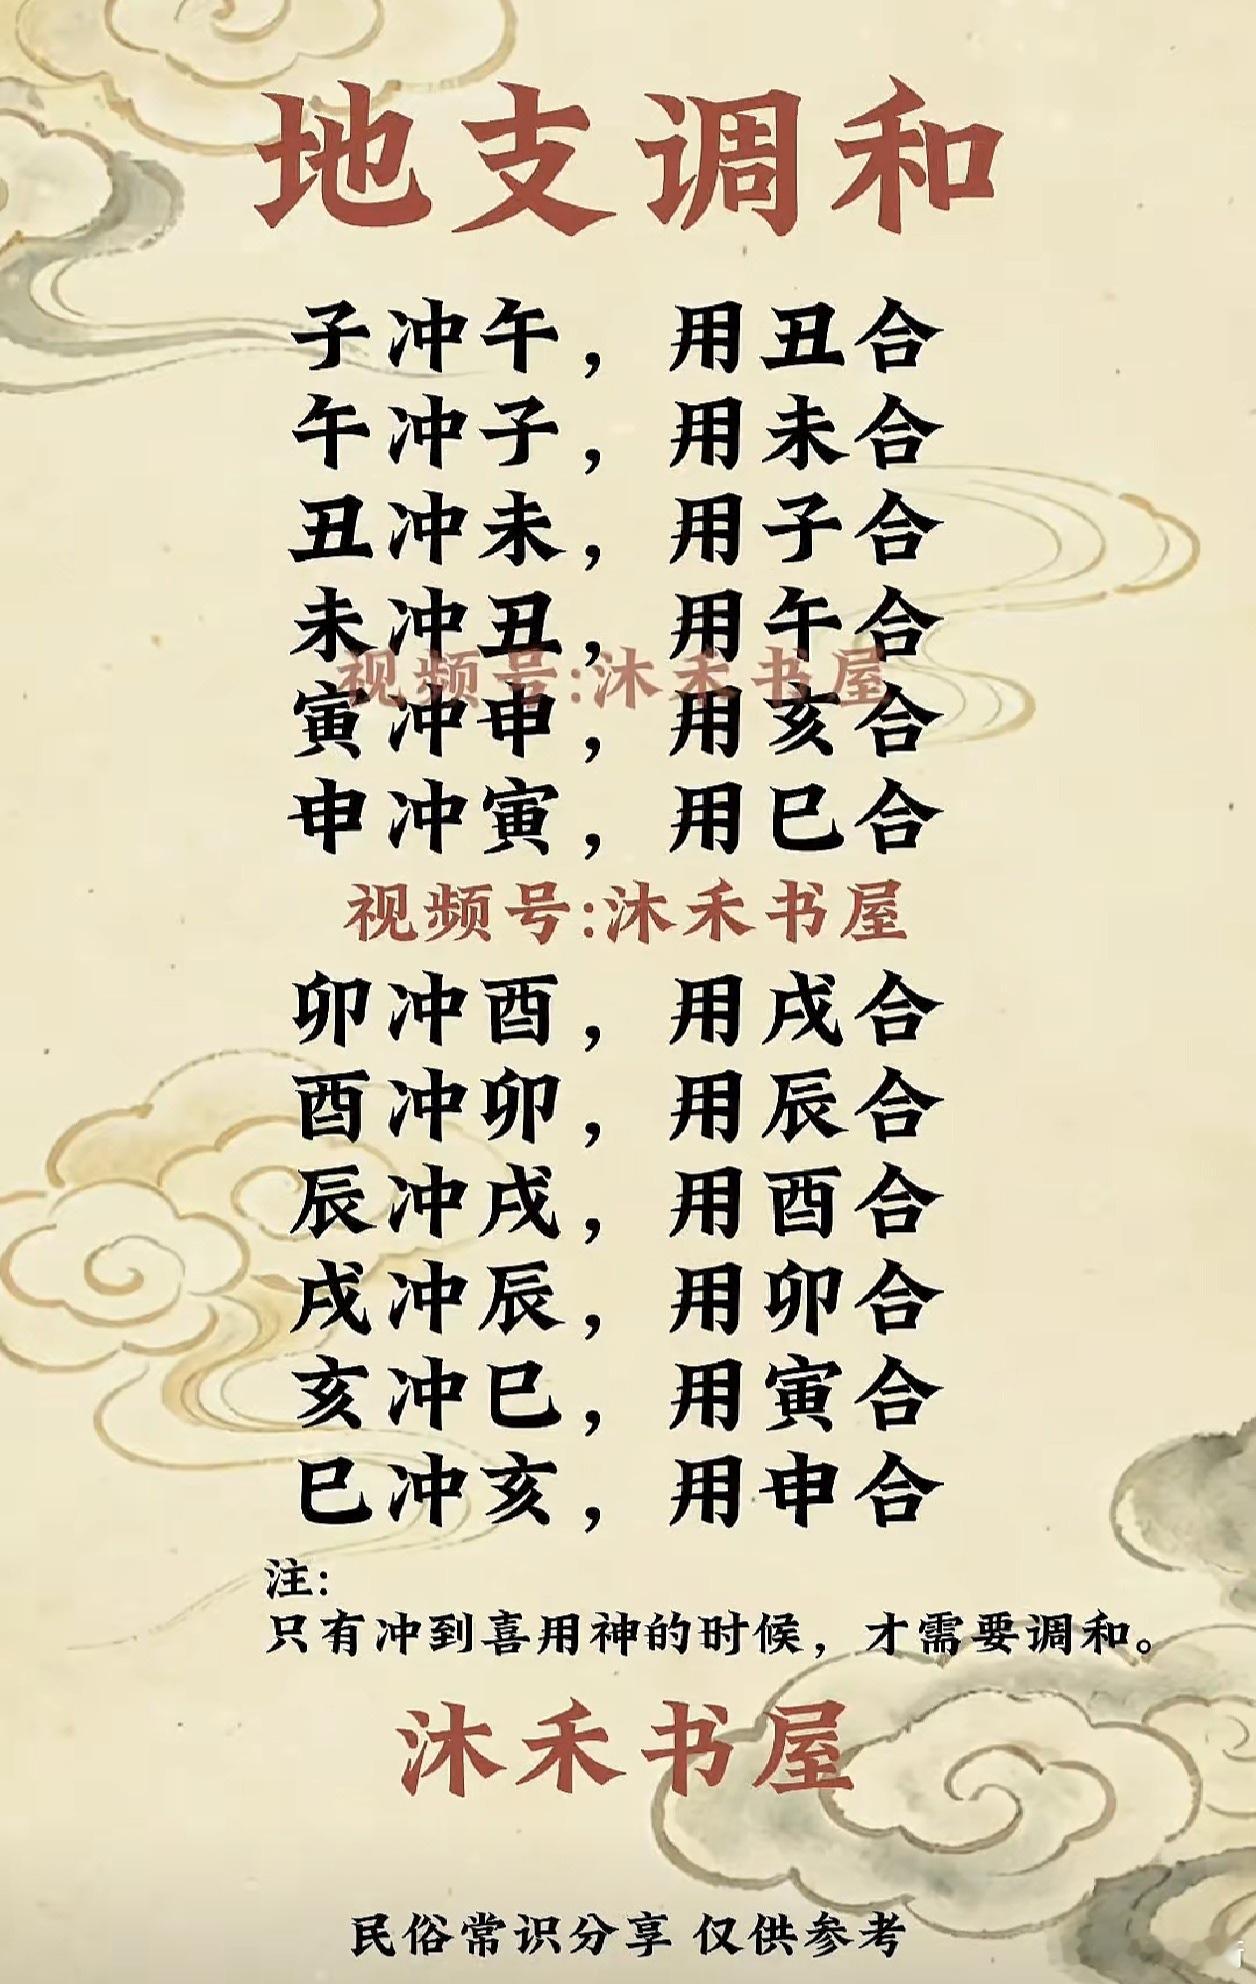 地支调和
子冲午，用丑合
午冲子，用未合
丑冲未，用子合
未冲丑，用午合
视频号:沐禾书屋
寅冲申，用亥合
申冲寅，用巳合
视频号:沐禾书屋
卯冲酉，用戌合
酉冲卯，用辰合
辰冲戌，用酉合
戌冲辰，用卯合
亥冲巳，用寅合
巳冲亥，用申合
注：
只有冲到喜用神的时候，才需要调和。
沐禾书屋
民俗常识分享 仅供参考